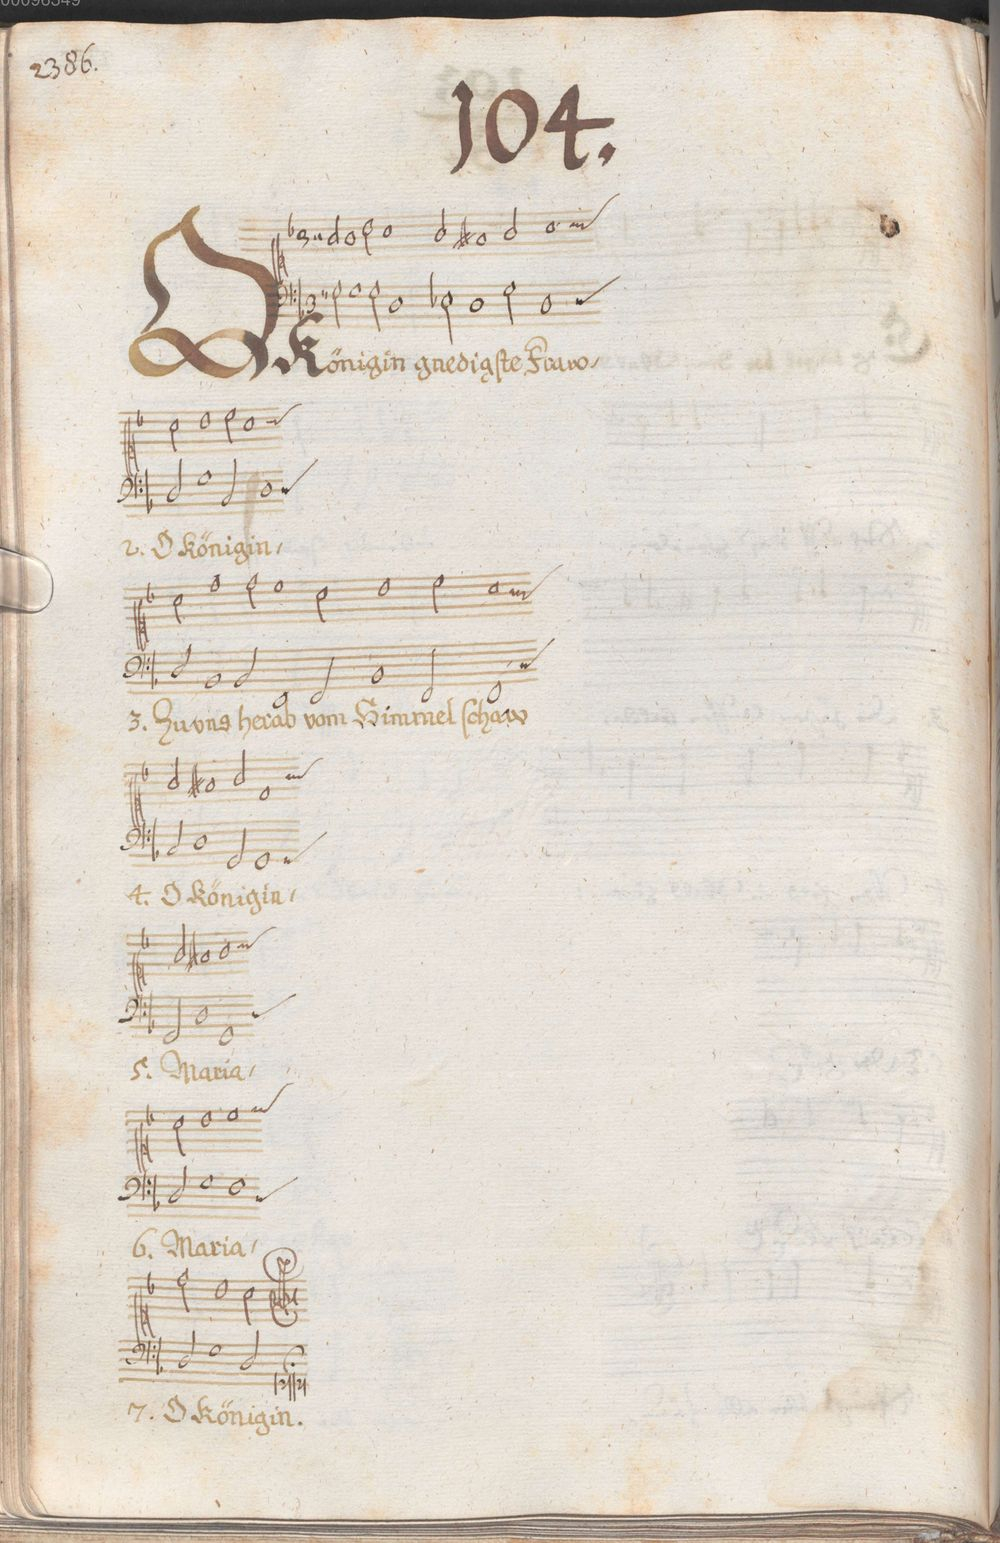 00098349
2386.
104.
O Königin gnedigste Fraw/
2. O Königin/
3. Zu vns herab vom Himmel schaw
4. O Königin/
5. Maria/
6. Maria/
7. O Königin.